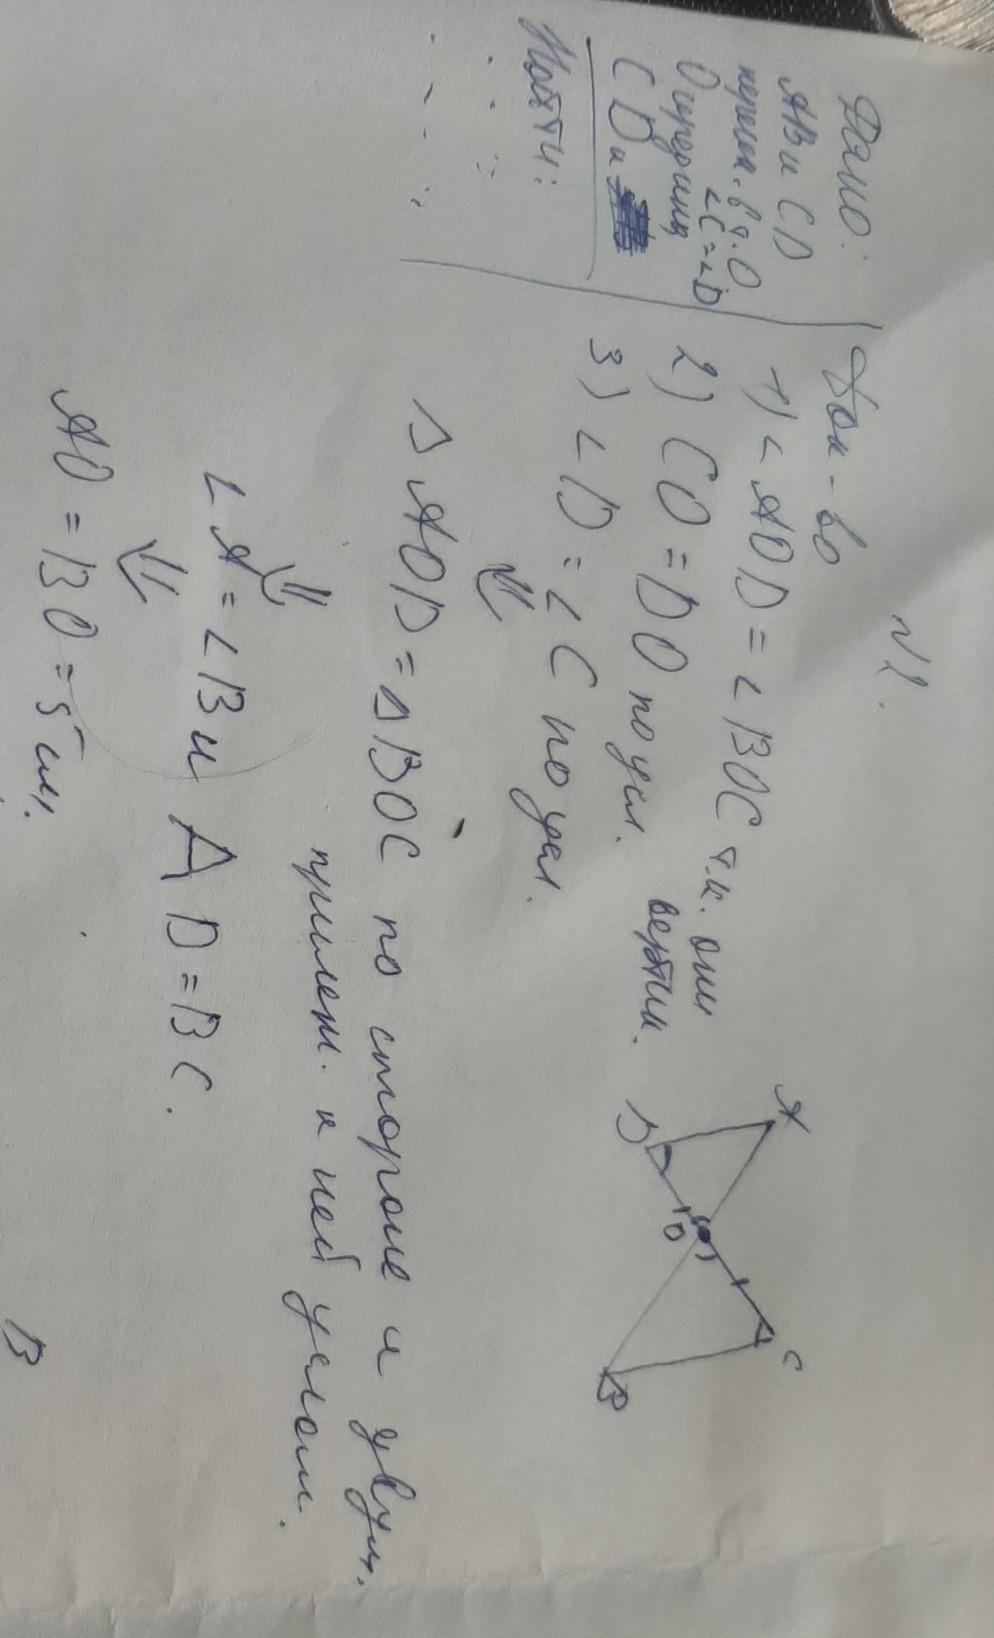 №2.
Дано:
АВ и CD
пересек. в т. О
∠C = ∠D
О середина
CD и
Найти:
Док-во
1) ∠AOD = ∠BOC т.к. они
вертик.
2) CO = DO по усл.
3) ∠D = ∠C по усл.
⇓
△AOD = △BOC по стороне и двум.
прилеж. к ней углам.
⇓
∠A = ∠B и AD = BC.
⇓
AO = BO = 5 см.
A
D
O
C
B
В